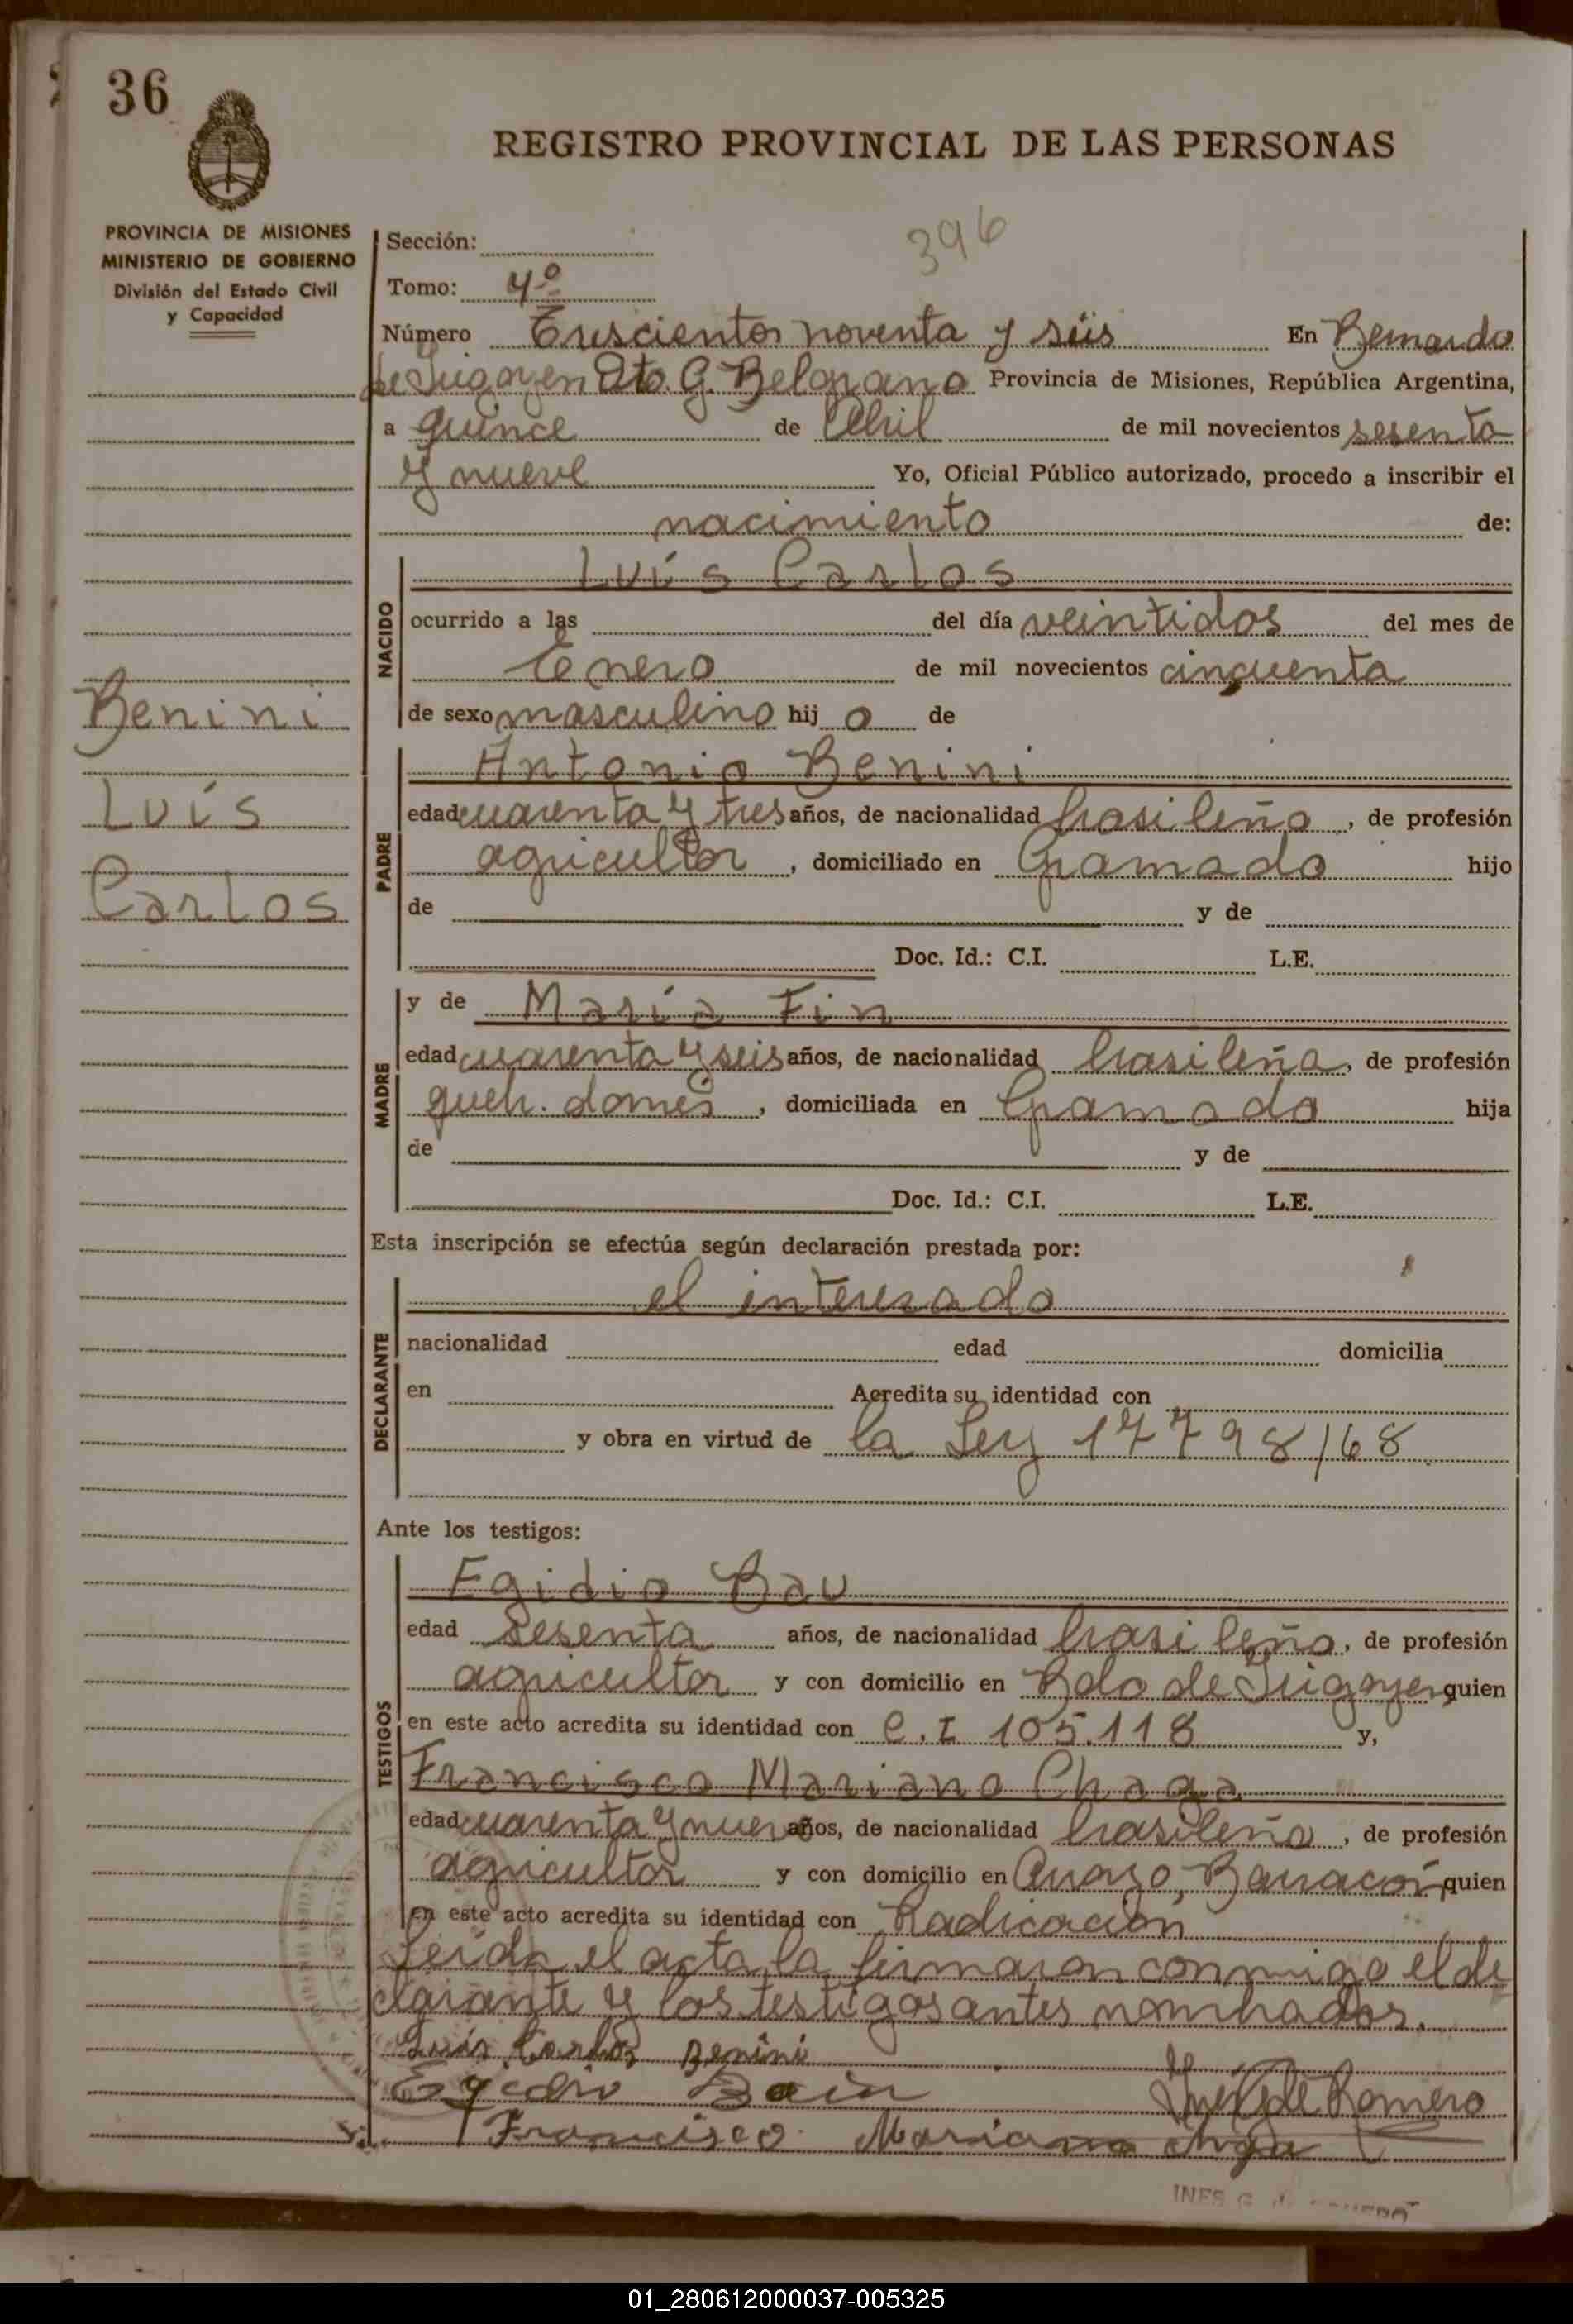 36
REGISTRO PROVINCIAL DE LAS PERSONAS
PROVINCIA DE MISIONES
MINISTERIO DE GOBIERNO
División del Estado Civil
y Capacidad
396
Sección:
Tomo: 4º
Número Trescientos noventa y seis En Bernardo
de Irigoyen Dto. G. Belgrano Provincia de Misiones, República Argentina,
a quince de Abril de mil novecientos sesenta
y nueve Yo, Oficial Público autorizado, procedo a inscribir el
nacimiento de:
Benini
Luís
Carlos
NACIDO
Luís Carlos
ocurrido a las del día veintidos del mes de
Enero de mil novecientos cinquenta
de sexo masculino hij o de
PADRE
Antonio Benini
edad cuarenta y tres años, de nacionalidad brasileña, de profesión
agricultor, domiciliado en Gramado hijo
de y de
Doc. Id.: C.I. L.E.
MADRE
y de María Fin
edad cuarenta y seis años, de nacionalidad brasileña, de profesión
queh. domes, domiciliada en Gramado hija
de y de
Doc. Id.: C.I. L.E.
Esta inscripción se efectúa según declaración prestada por:
DECLARANTE
el interesado
nacionalidad edad domicilia
en Acredita su identidad con
y obra en virtud de la Ley 17798/68
Ante los testigos:
TESTIGOS
Egidio Bau
edad Sesenta años, de nacionalidad brasileña, de profesión
agricultor y con domicilio en Bdo de Irigoyen quien
en este acto acredita su identidad con C.I 105.118 y,
Francisco Mariano Chaga
edad cuarenta y nueve años, de nacionalidad brasileña, de profesión
agricultor y con domicilio en Barracón quien
en este acto acredita su identidad con Radicación
Leída el acta la firmaron conmigo el de
clarante y los testigos antes nombrados.
Luis Carlos Benini
Francisco Mariano
Romero
INES G.
01_280612000037-005325